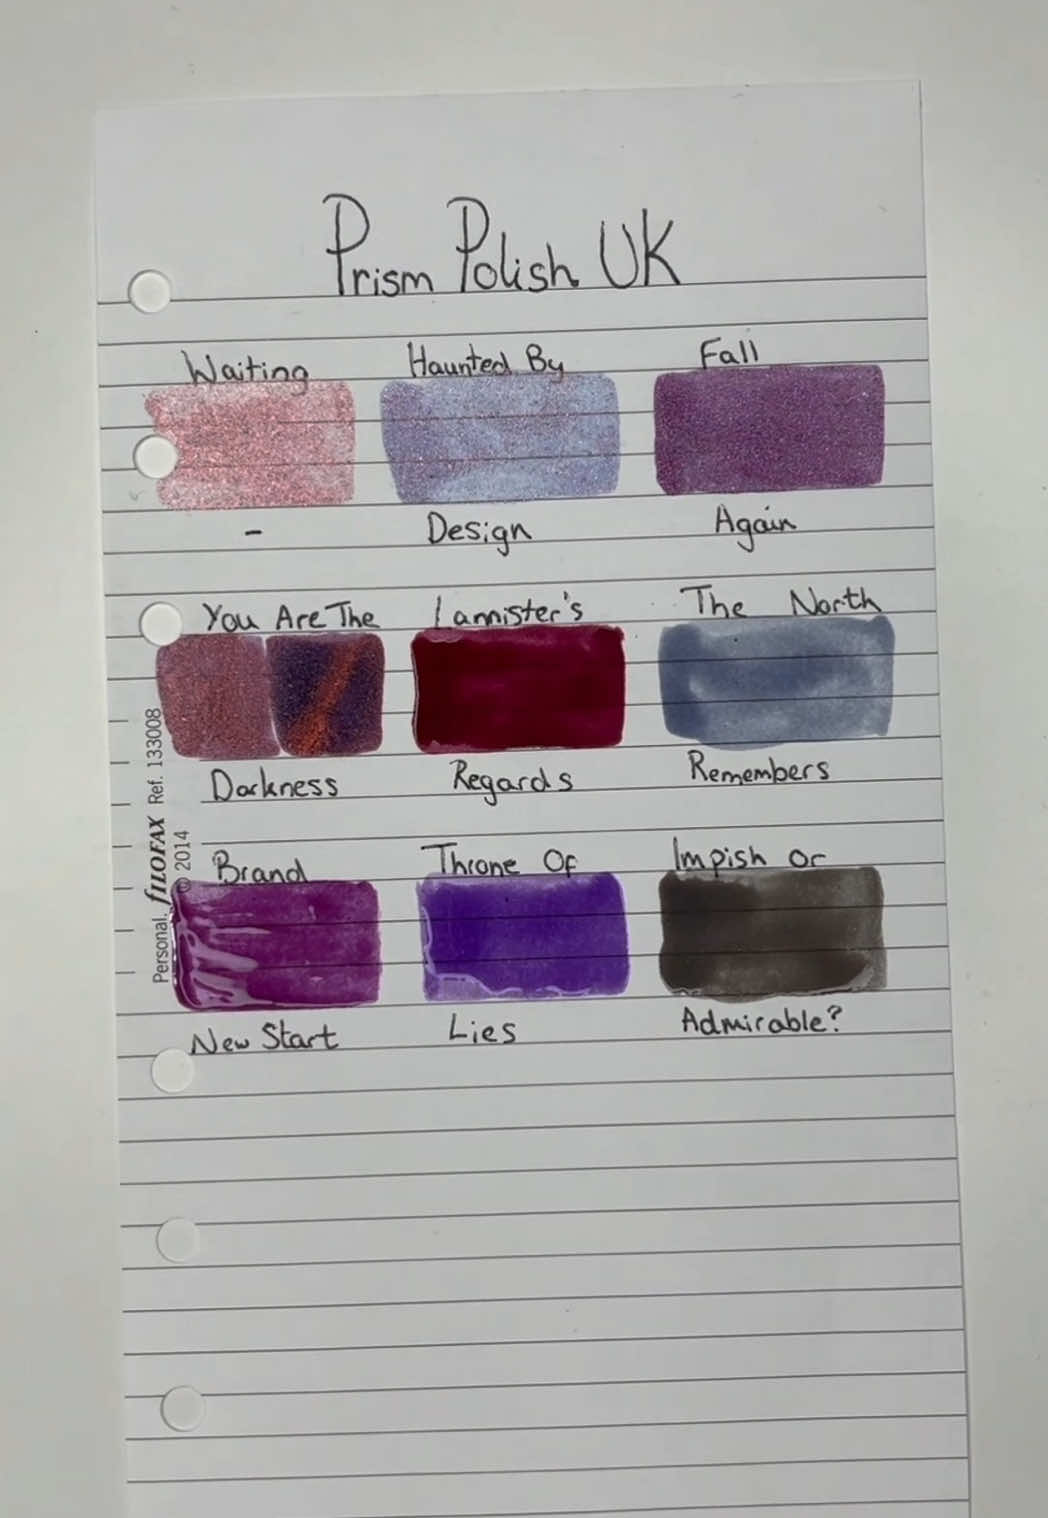 Prism Polish UK
Waiting Haunted By Fall
- Design Again
You Are The Lannister's The North
Darkness Regards Remembers
Brand Throne Of Impish or
New Start Lies Admirable?
Personal. fILOFAX Ref. 133008
© 2014